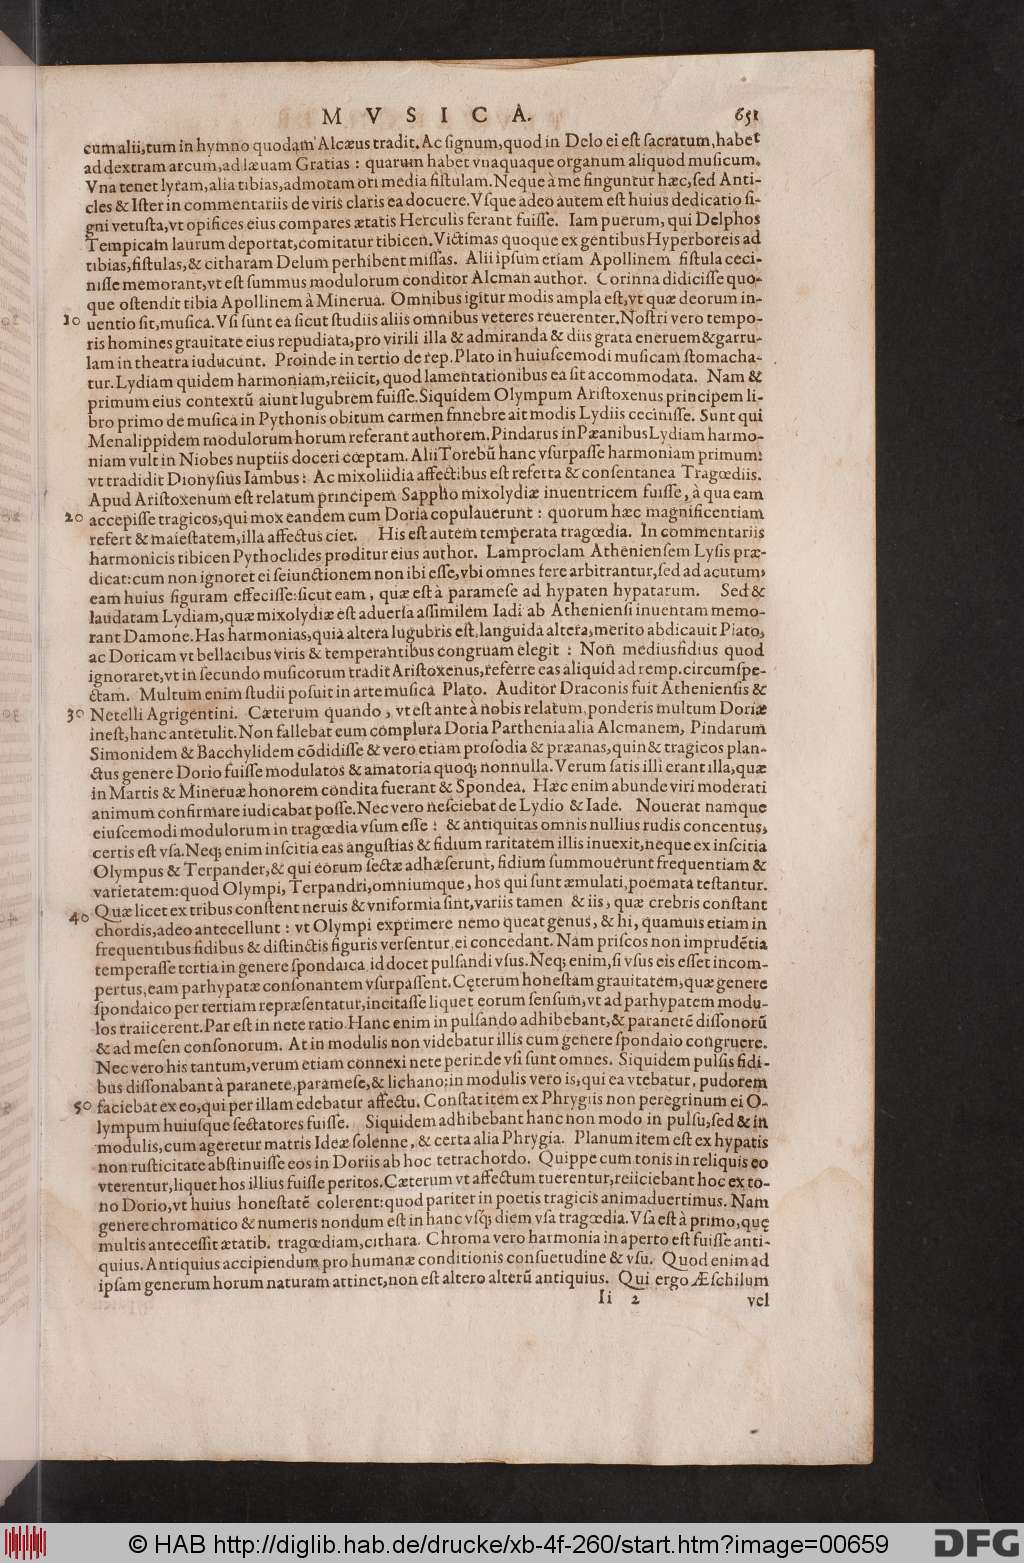 MVSICA. 651
cum alii, tum in hymno quodam Alcæus tradit. Ac signum, quod in Delo ei est sacratum, habet
ad dextram arcum, ad læuam Gratias : quarum habet vnaquaque organum aliquod musicum.
Vna tenet lyram, alia tibias, admotam ori media fistulam. Neque à me finguntur hæc, sed Anti-
cles & Ister in commentariis de viris claris ea docuere. Vsque adeo autem est huius dedicatio si-
gni vetusta, vt opifices eius compares ætatis Herculis ferant fuisse. Iam puerum, qui Delphos
Tempicam laurum deportat, comitatur tibicen. Victimas quoque ex gentibus Hyperboreis ad
tibias, fistulas, & citharam Delum perhibent missas. Alii ipsum etiam Apollinem fistula ceci-
nisse memorant, vt est summus modulorum conditor Alcman author. Corinna didicisse quo-
que ostendit tibia Apollinem à Minerua. Omnibus igitur modis ampla est, vt quæ deorum in-
10 uentio sit, musica. Vsi sunt ea sicut studiis aliis omnibus veteres reuerenter. Nostri vero tempo-
ris homines grauitate eius repudiata, pro virili illa & admiranda & diis grata eneruem & garru-
lam in theatra iuducunt. Proinde in tertio de rep. Plato in huiuscemodi musicam stomacha-
tur. Lydiam quidem harmoniam, reiicit, quod lamentationibus ea sit accommodata. Nam &
primum eius contextū aiunt lugubrem fuisse. Siquidem Olympum Aristoxenus principem li-
bro primo de musica in Pythonis obitum carmen fnnebre ait modis Lydiis cecinisse. Sunt qui
Menalippidem modulorum horum referant authorem. Pindarus in Pæanibus Lydiam harmo-
niam vult in Niobes nuptiis doceri cœptam. Alii Torebū hanc vsurpasse harmoniam primum:
vt tradidit Dionysius Iambus : Ac mixoliidia affectibus est referta & consentanea Tragœdiis.
Apud Aristoxenum est relatum principem Sappho mixolydiæ inuentricem fuisse, à qua eam
20 accepisse tragicos, qui mox eandem cum Doria copulauerunt : quorum hæc magnificentiam
refert & maiestatem, illa affectus ciet. His est autem temperata tragœdia. In commentariis
harmonicis tibicen Pythoclides proditur eius author. Lamproclam Atheniensem Lysis præ-
dicat: cum non ignoret ei seiunctionem non ibi esse, vbi omnes fere arbitrantur, sed ad acutum,
eam huius figuram effecisse: sicut eam, quæ est à paramese ad hypaten hypatarum. Sed &
laudatam Lydiam, quæ mixolydiæ est aduersa assimilem Iadi ab Atheniensi inuentam memo-
rant Damone. Has harmonias, quia altera lugubris est, languida altera, merito abdicauit Plato,
ac Doricam vt bellacibus viris & temperantibus congruam elegit : Non mediusfidius quod
ignoraret, vt in secundo musicorum tradit Aristoxenus, referre eas aliquid ad remp. circumspe-
ctam. Multum enim studii posuit in arte musica Plato. Auditor Draconis fuit Atheniensis &
30 Netelli Agrigentini. Cæterum quando, vt est ante à nobis relatum, ponderis multum Doriæ
inest, hanc antetulit. Non fallebat eum complura Doria Parthenia alia Alcmanem, Pindarum
Simonidem & Bacchylidem cōdidisse & vero etiam prosodia & præanas, quin & tragicos plan-
ctus genere Dorio fuisse modulatos & amatoria quoq; nonnulla. Verum satis illi erant illa, quæ
in Martis & Mineruæ honorem condita fuerant & Spondea. Hæc enim abunde viri moderati
animum confirmare iudicabat posse. Nec vero nesciebat de Lydio & Iade. Nouerat namque
eiuscemodi modulorum in tragœdia vsum esse : & antiquitas omnis nullius rudis concentus,
certis est vsa. Neq; enim inscitia eas angustias & fidium raritatem illis inuexit, neque ex inscitia
Olympus & Terpander, & qui eorum sectæ adhæserunt, fidium summouerunt frequentiam &
varietatem: quod Olympi, Terpandri, omniumque, hos qui sunt æmulati, poemata testantur.
40 Quæ licet ex tribus constent neruis & vniformia sint, variis tamen & iis, quæ crebris constant
chordis, adeo antecellunt : vt Olympi exprimere nemo queat genus, & hi, quamuis etiam in
frequentibus fidibus & distinctis figuris versentur, ei concedant. Nam priscos non imprudētia
temperasse tertia in genere spondaica id docet pulsandi vsus. Neq; enim, si vsus eis esset incom-
pertus, eam parhypatæ consonantem vsurpassent. Cęterum honestam grauitatem, quæ genere
spondaico per tertiam repræsentatur, incitasse liquet eorum sensum, vt ad parhypatem modu-
los traiicerent. Par est in nete ratio. Hanc enim in pulsando adhibebant, & paranetē dissonorū
& ad mesen consonorum. At in modulis non videbatur illis cum genere spondaio congruere.
Nec vero his tantum, verum etiam connexi nete perinde vsi sunt omnes. Siquidem pulsis fidi-
bus dissonabant à paranete, paramese, & lichano; in modulis vero is, qui ea vtebatur, pudorem
50 faciebat ex eo, qui per illam edebatur affectu. Constat item ex Phrygiis non peregrinum ei O-
lympum huiusque sectatores fuisse. Siquidem adhibebant hanc non modo in pulsu, sed & in
modulis, cum ageretur matris Ideæ solenne, & certa alia Phrygia. Planum item est ex hypatis
non rusticitate abstinuisse eos in Doriis ab hoc tetrachordo. Quippe cum tonis in reliquis eo
vterentur, liquet hos illius fuisse peritos. Cæterum vt affectum tuerentur, reiiciebant hoc ex to-
no Dorio, vt huius honestatē colerent: quod pariter in poetis tragicis animaduertimus. Nam
genere chromatico & numeris nondum est in hanc vsq; diem vsa tragœdia. Vsa est à primo, quę
multis antecessit ætatib. tragœdiam, cithara. Chroma vero harmonia in aperto est fuisse anti-
quius. Antiquius accipiendum pro humanæ conditionis consuetudine & vsu. Quod enim ad
ipsam generum horum naturam attinet, non est altero alterū antiquius. Qui ergo Æschilum
Ii 2 vel
© HAB http://diglib.hab.de/drucke/xb-4f-260/start.htm?image=00659
DFG